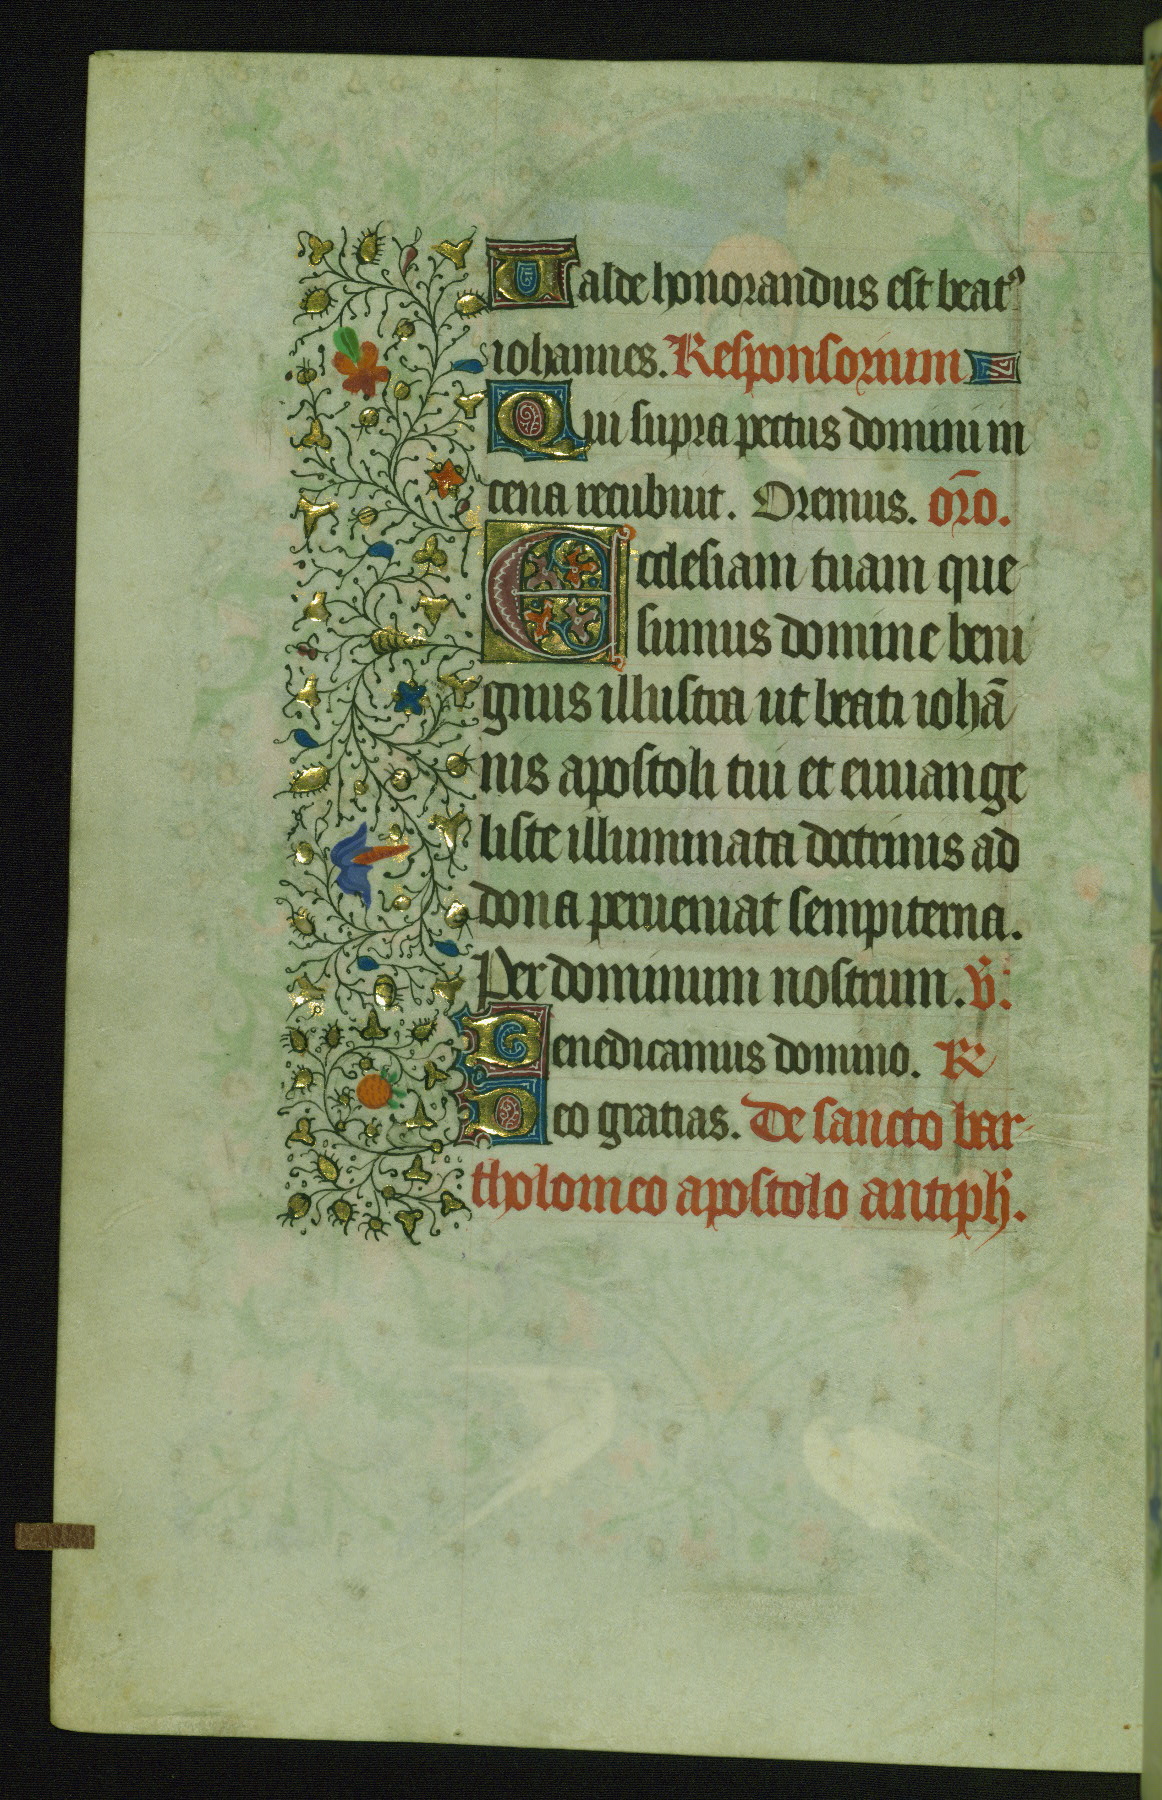 Ualde honorandus est beatꝯ
iohannes. Responsorium
Qui supra pectus domini in
cena recubuit. Oremus. or̄o.
Ecclesiam tuam que
sumus domine beni
gnus illustra ut beati iohā
nis apostoli tui et euuange
liste illuminata doctrinis ad
dona perueniat sempiterna.
Per dominum nostrum. v̄.
Benedicamus domino. R
Deo gratias. De sancto bar-
tholomeo apostolo antiph̄.